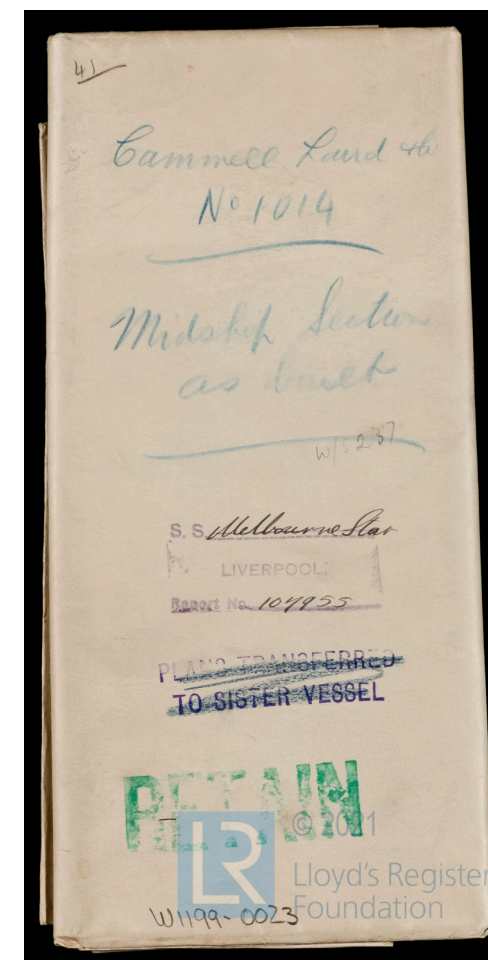 41
Cammell Laird & Co
No 1014
Midship Section
as built
W/S 237
S. S. Melbourne Star
LIVERPOOL.
Report No. 104955
PLANS TRANSFERRED
TO SISTER VESSEL
RETAIN
© 2021
LR
Lloyd's Register
Foundation
W1199-0023